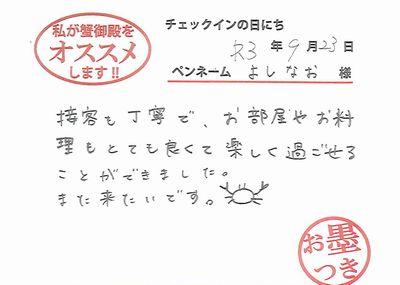 私が蟹御殿を
オススメ
します!!
チェックインの日にち
R3年9月23日
ペンネーム よしなお 様
接客も丁寧で、お部屋やお料
理もとても良くて楽しく過ごせる
ことができました。
また来たいです。
お墨
つき